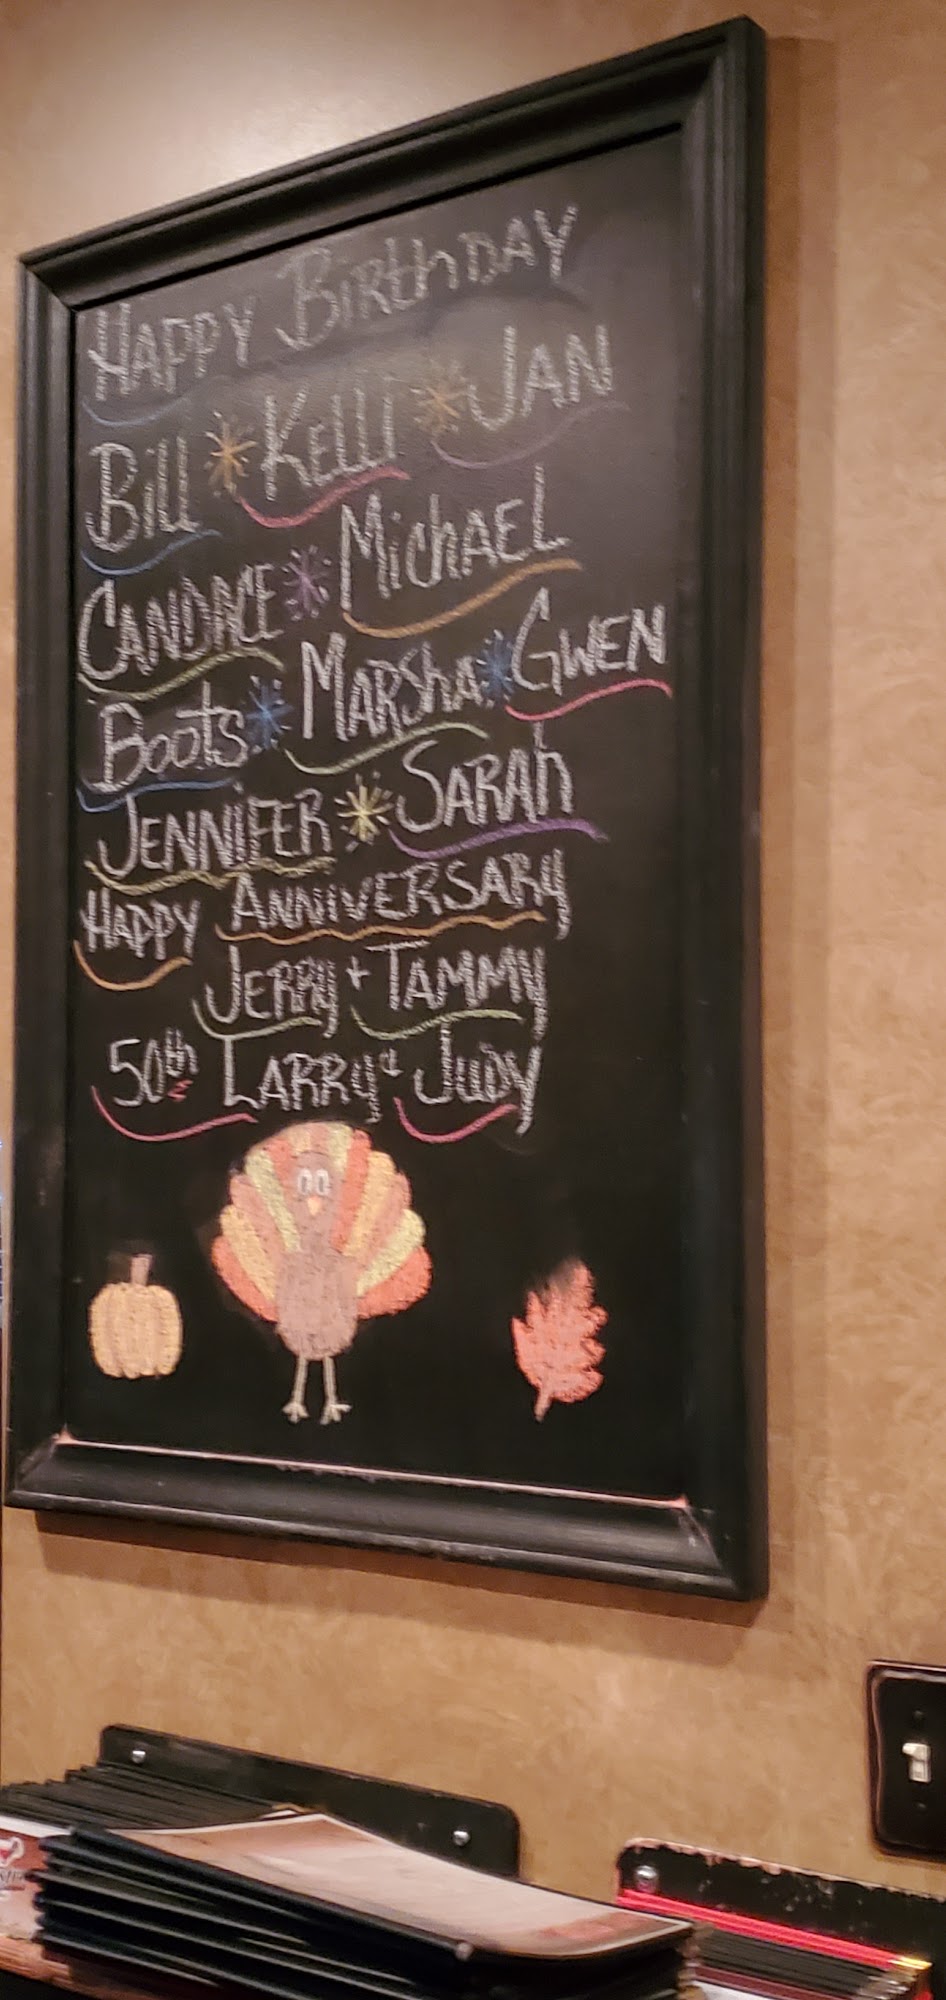 Happy Birthday
Bill * Kelli * Jan
Candace * Michael
Boots * Marsha * Gwen
Jennifer * Sarah
Happy Anniversary
Jerry + Tammy
50th Larry & Judy